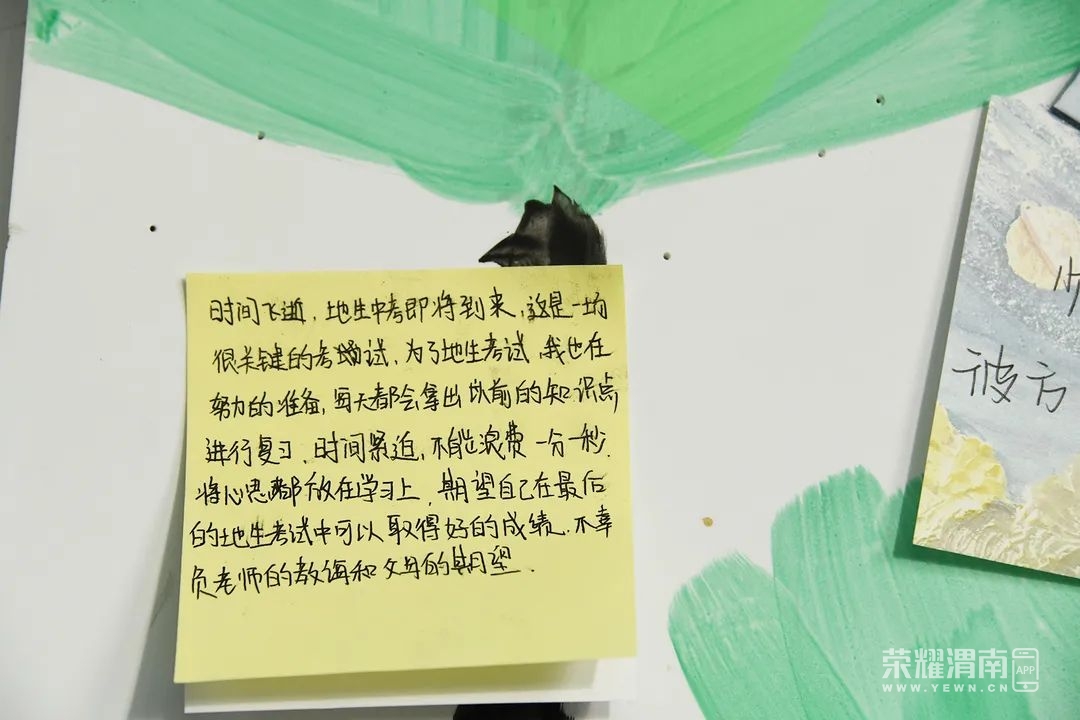 时间飞逝,地生中考即将到来,这是一场
很关键的考试,为了地生考试,我也在
努力的准备,每天都会拿出以前的知识点
进行复习,时间紧迫,不能浪费一分一秒.
将心思都放在学习上,期望自己在最后
的地生考试中可以取得好的成绩.不辜
负老师的教诲和父母的期望.
彼方
荣耀渭南 APP
WWW.YEWN.CN